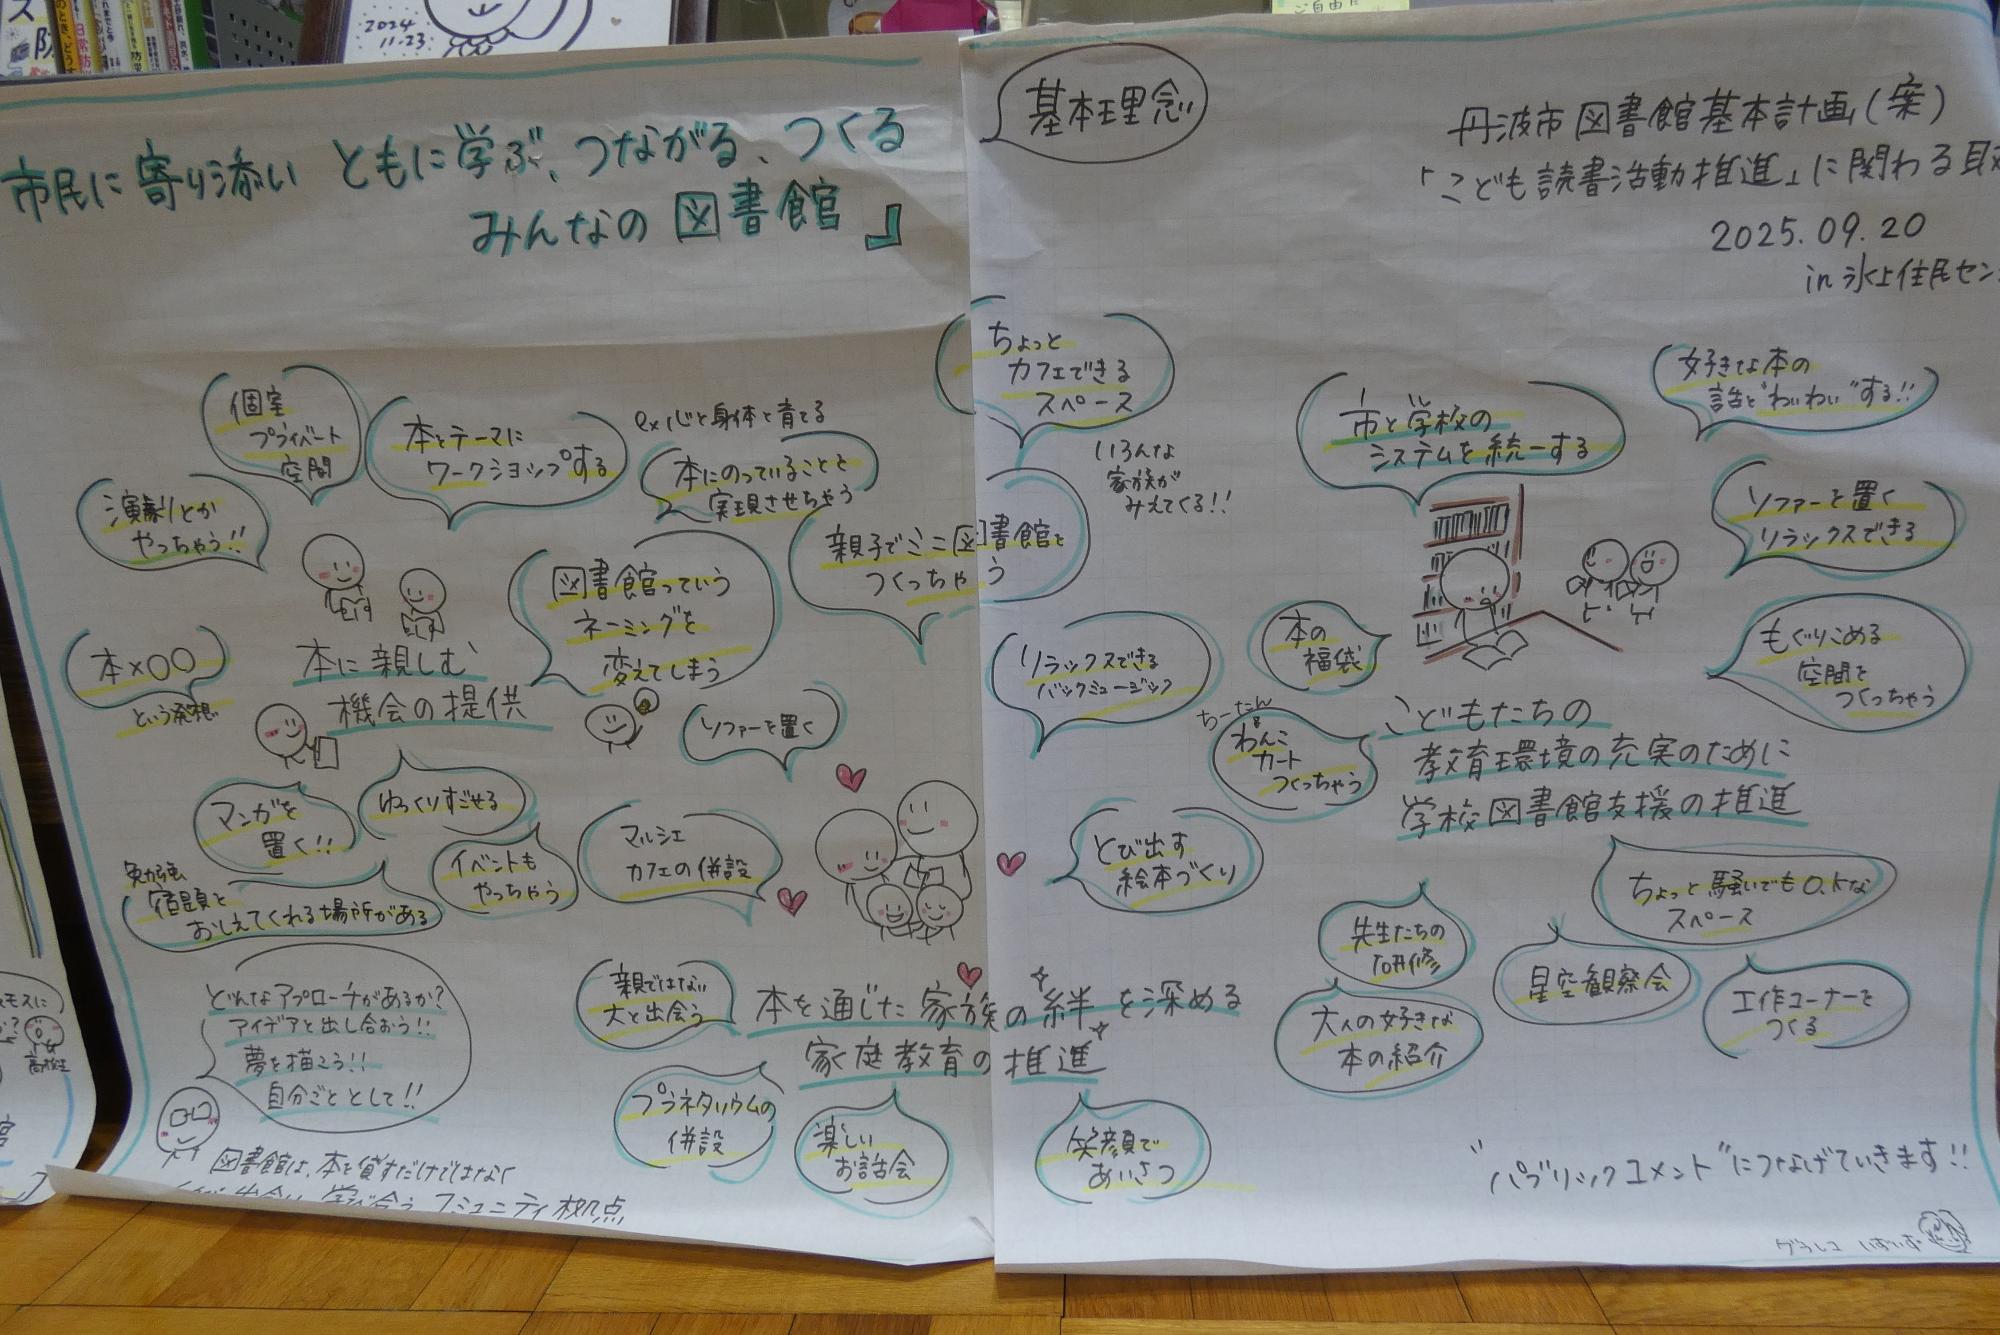 2024
11.23
ご自由に
基本理念
市民に寄り添い ともに学ぶ、つながる、つくる
みんなの図書館』
丹波市図書館基本計画(案)
「こども読書活動推進」に関わる取
2025.09.20
in 氷上住民セン
個室
プライベート
空間
本とテーマに
ワークショップする
ex 心と身体を育てる
本にのっていることを
実現させちゃう
演劇とか
やっちゃう!!
図書館っていう
ネーミングを
変えてしまう
親子でミニ図書館を
つくっちゃう
本×〇〇
という発想
本に親しむ
機会の提供
ソファーを置く
マンガを
置く!!
ゆっくりすごせる
イベントも
やっちゃう
マルシェ
カフェの併設
勉強
宿題を
おしえてくれる場所がある
どんなアプローチがあるか?
アイデアを出し合おう!!
夢を描こう!!
自分ごととして!!
図書館は、本を貸すだけではなく
学び合うコミュニティ拠点
高校生
親ではない
大と出会う
本を通じた家族の絆を深める
家庭教育の推進
プラネタリウムの
併設
楽しい
お話会
笑顔で
あいさつ
ちょっと
カフェできる
スペース
いろんな
家族が
みえてくる!!
リラックスできる
バックミュージック
とび出す
絵本づくり
市と学校の
システムを統一する
好きな本の
話を"わいわい"する!!
ソファーを置く
リラックスできる
もぐりこめる
空間を
つくっちゃう
本の
福袋
ちーたん
わんこ
カート
つくっちゃう
こどもたちの
教育環境の充実のために
学校図書館支援の推進
ちょっと騒いでもO.Kな
スペース
先生たちの
研修
星空観察会
工作コーナーを
つくる
大人の好きな
本の紹介
"パブリックコメント"につなげていきます!!
グラレコ